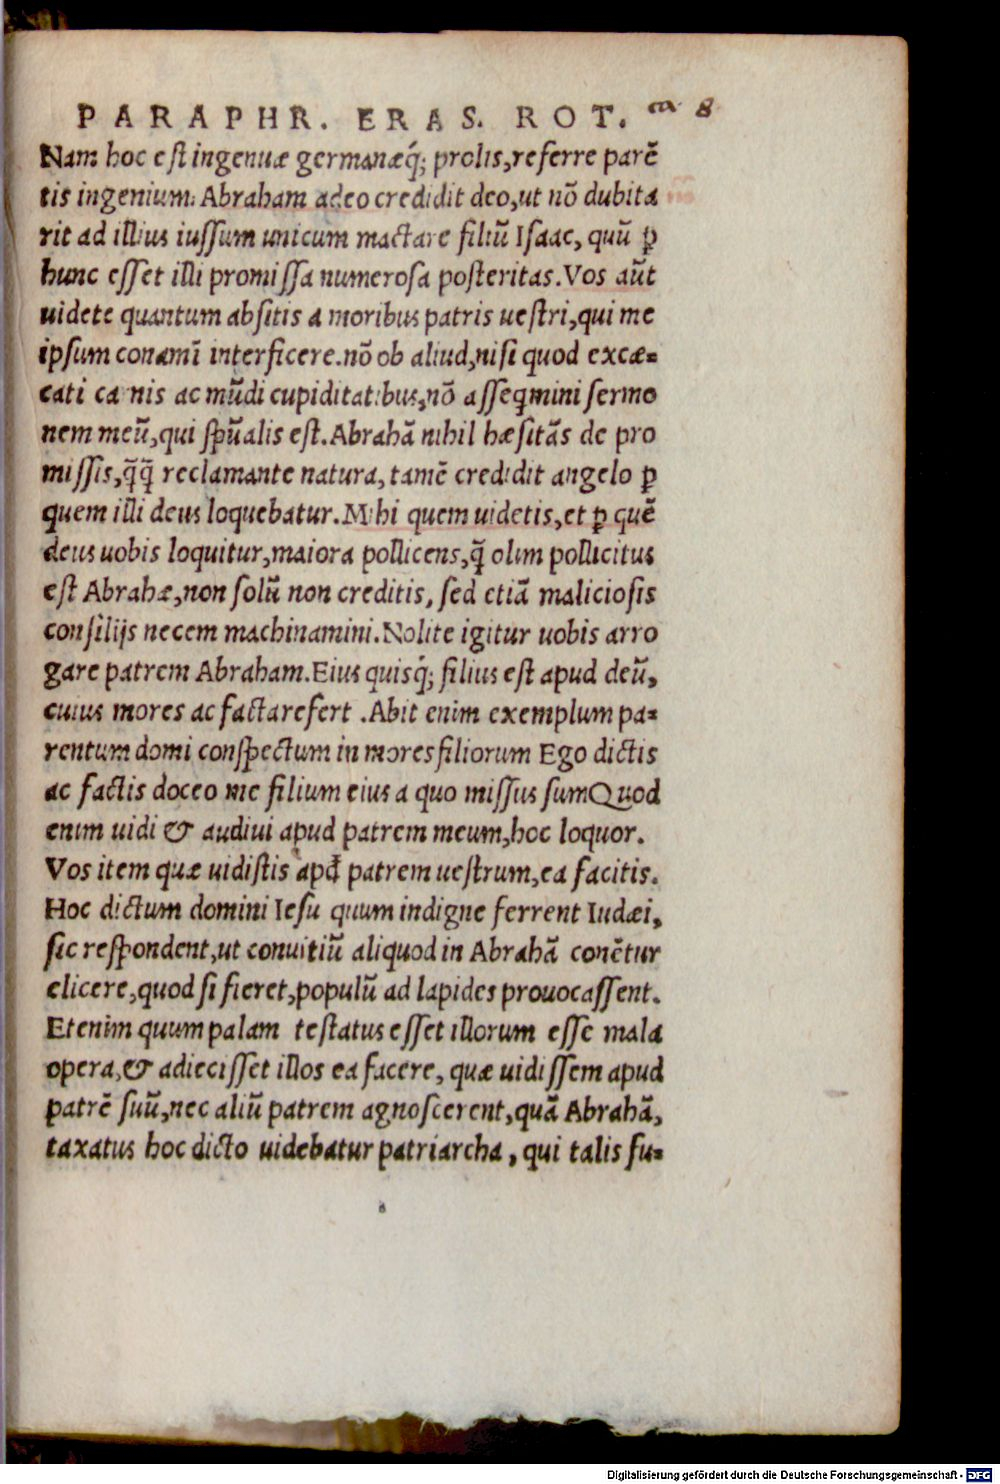 PARAPHR. ERAS. ROT. ca 8
Nam hoc est ingenuæ germanæq́; prolis, referre parē
tis ingenium. Abraham adeo credidit deo, ut nō dubita
rit ad illius iussum unicum mactare filiū Isaac, quū ꝑ
hunc esset illi promissa numerosa posteritas. Vos aūt
uidete quantum absitis a moribus patris uestri, qui me
ipsum conamī interficere. nō ob aliud, nisi quod excæ-
cati ca nis ac mūdi cupiditatibus, nō asseq̄mini sermo
nem meū, qui sp̄ualis est. Abrahā nihil hæsitās de pro
missis, q̄q̄ reclamante natura, tamē credidit angelo ꝑ
quem illi deus loquebatur. Mihi quem uidetis, et ꝑ quē
deus uobis loquitur, maiora pollicens, q̄ olim pollicitus
est Abrahæ, non solū non creditis, sed etiā maliciosis
consilijs necem machinamini. Nolite igitur uobis arro
gare patrem Abraham. Eius quisq́; filius est apud deū,
cuius mores ac facta refert . Abit enim exemplum pa-
rentum domi conspectum in mores filiorum Ego dictis
ac factis doceo me filium eius a quo missus sum Quod
enim uidi & audiui apud patrem meum, hoc loquor.
Vos item quæ uidistis apđ patrem uestrum, ea facitis.
Hoc dictum domini Iesu quum indigne ferrent Iudæi,
sic respondent, ut conuitiū aliquod in Abrahā conētur
elicere, quod si fieret, populū ad lapides prouocassent.
Etenim quum palam testatus esset illorum esse mala
opera, & adiecisset illos ea facere, quæ uidissem apud
patrē suū, nec aliū patrem agnoscerent, quā Abrahā,
taxatus hoc dicto uidebatur patriarcha, qui talis fu-
Digitalisierung gefördert durch die Deutsche Forschungsgemeinschaft - DFG